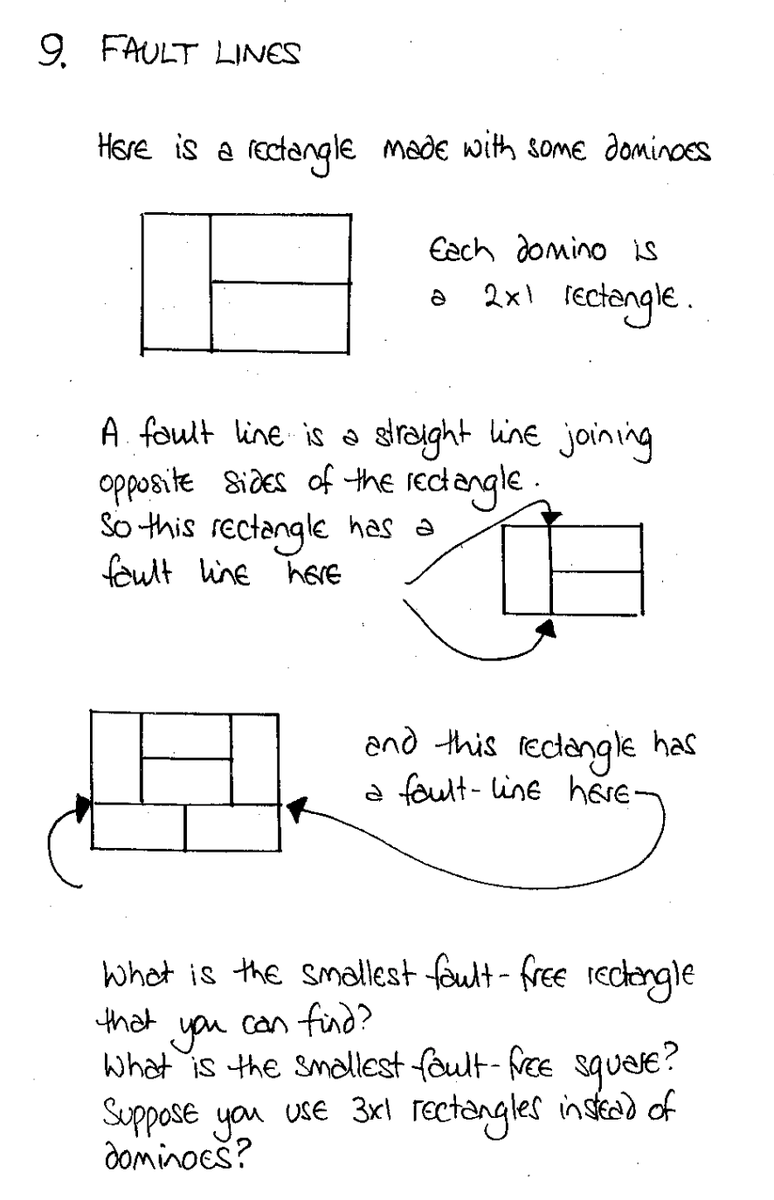 9. FAULT LINES
Here is a rectangle made with some dominoes
Each domino is
a 2x1 rectangle.
A fault line is a straight line joining
opposite sides of the rectangle.
So this rectangle has a
fault line here
and this rectangle has
a fault-line here
What is the smallest fault-free rectangle
that you can find?
What is the smallest fault-free square?
Suppose you use 3x1 rectangles instead of
dominoes?